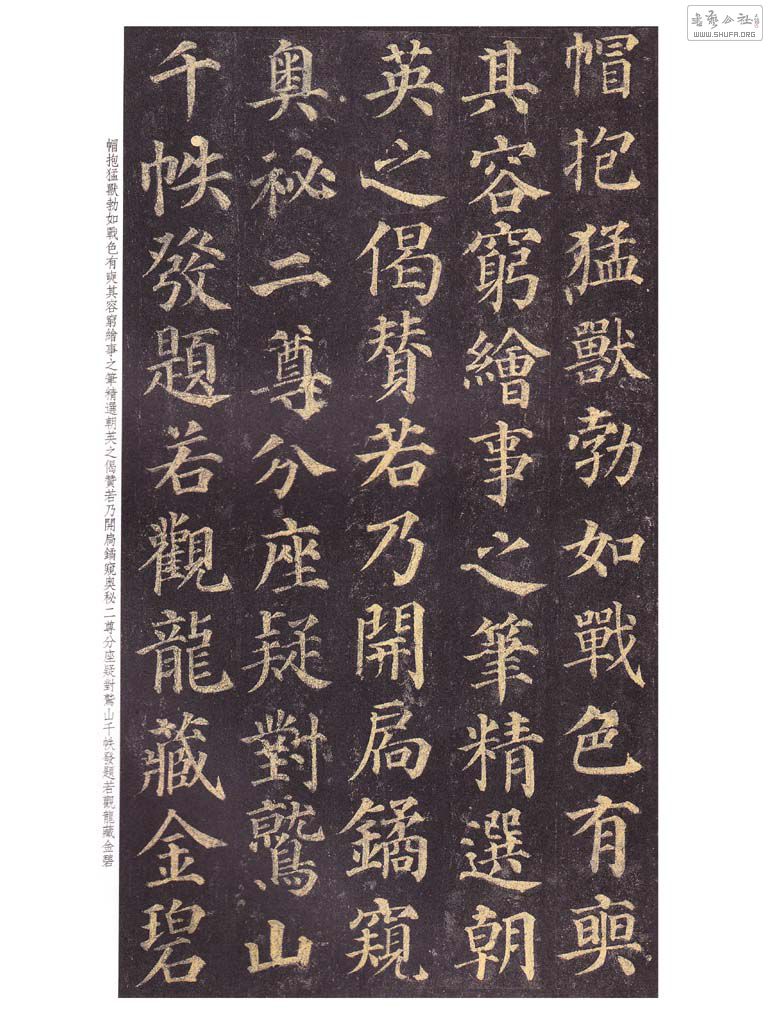 帽抱猛獸勃如戰色有奭
其容窮繪事之筆精選朝
英之偈賛若乃開扃鐍窺
奥秘二尊分座疑對鷲山
千帙發題若觀龍藏金碧
帽抱猛獸勃如戰色有奭其容窮繪事之筆精選朝英之偈賛若乃開扃鐍窺奥秘二尊分座疑對鷲山千帙發題若觀龍藏金碧
書藝公社
WWW.SHUFA.ORG